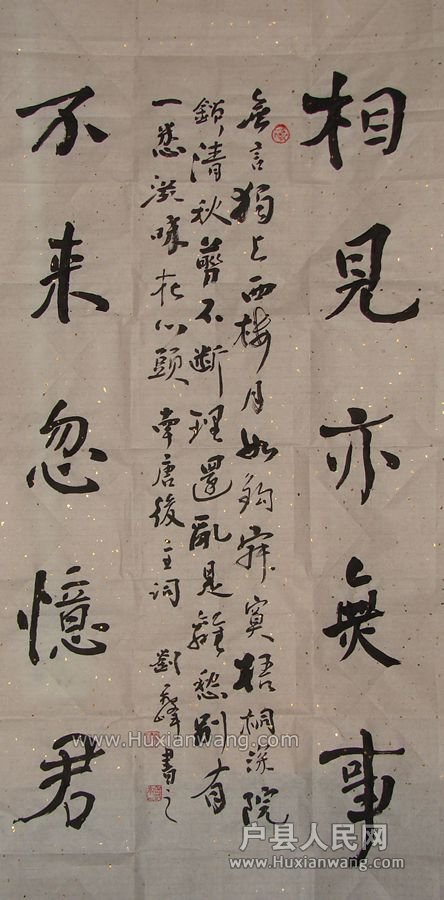 相見亦無事
無言獨上西樓月如鈎寂寞梧桐深院
鎖清秋剪不斷理還亂是離愁別有
一滋味在心頭 南唐後主詞 劉峰書之
不来忽憶君
www.Huxianwang.com
户县人民网
www.Huxianwang.com